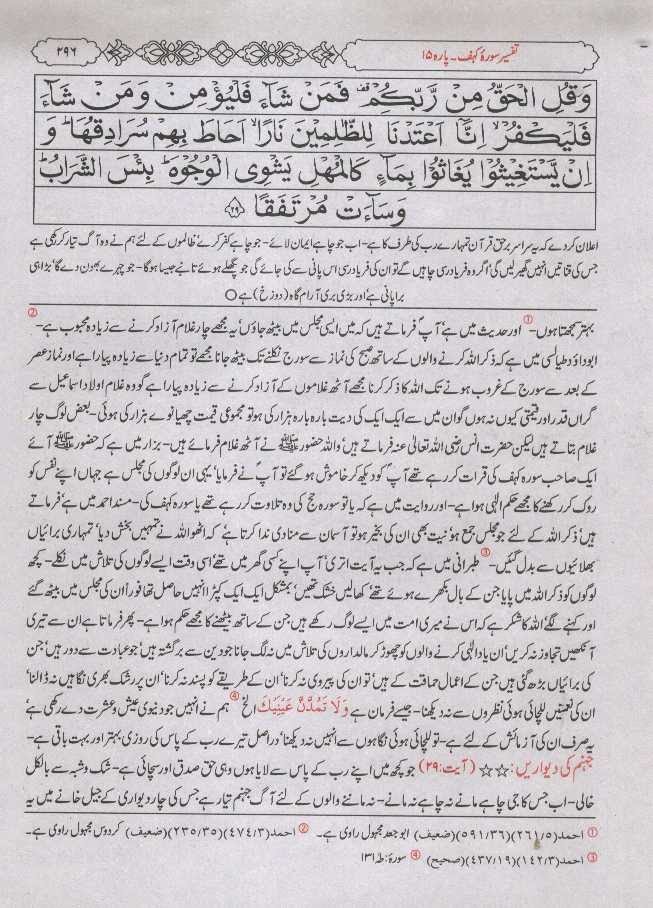 تفسیر سورۂ کہف۔ پارہ ۱۵
۲۹۶
وَقُلِ الْحَقُّ مِنْ رَّبِّكُمْ ۫ فَمَنْ شَآءَ فَلْيُؤْمِنْ وَّ مَنْ شَآءَ
فَلْيَكْفُرْ ۙ اِنَّاۤ اَعْتَدْنَا لِلظّٰلِمِيْنَ نَارًا ۙ اَحَاطَ بِهِمْ سُرَادِقُهَا ؕ وَ
اِنْ يَّسْتَغِيْثُوْا يُغَاثُوْا بِمَآءٍ كَالْمُهْلِ يَشْوِى الْوُجُوْهَ ؕ بِئْسَ الشَّرَابُ ؕ
وَسَآءَتْ مُرْتَفَقًا ۝۲۹
اعلان کردے کہ یہ سراسر برحق قرآن تمہارے رب کی طرف کا ہے۔ اب جو چاہے ایمان لائے۔ جو چاہے کفر کرے، ظالموں کے لئے ہم نے وہ آگ تیار کر رکھی ہے
جس کی قناتیں انہیں گھیر لیں گی، اگر وہ فریاد رسی چاہیں گے تو ان کی فریاد رسی اس پانی سے کی جائے گی جو پگھلے ہوئے تانبے جیسا ہوگا۔ جو چہرے بھون دے گا، بڑا ہی
برا پانی ہے، اور بڑی بری آرام گاہ (دوزخ) ہے ○
بہتر سمجھتا ہوں۔ ① اور حدیث میں ہے، آپؐ فرماتے ہیں کہ میں ایسی مجلس میں بیٹھ جاؤں، یہ مجھے چار غلام آزاد کرنے سے زیادہ محبوب ہے۔ ②
ابوداؤد طیالسی میں ہے کہ ذکر اللہ کرنے والوں کے ساتھ صبح کی نماز سے سورج نکلنے تک بیٹھ جانا مجھے تو تمام دنیا سے زیادہ پیارا ہے اور نماز عصر
کے بعد سے سورج کے غروب ہونے تک اللہ کا ذکر کرنا مجھے آٹھ غلاموں کے آزاد کرنے سے زیادہ پیارا ہے گو وہ غلام اولاد اسماعیل سے
گراں قدر اور قیمتی کیوں نہ ہوں گو ان میں سے ایک ایک کی دیت بارہ بارہ ہزار کی ہو تو مجموعی قیمت چھیانوے ہزار کی ہوئی۔ بعض لوگ چار
غلام بتاتے ہیں لیکن حضرت انس رضی اللہ تعالیٰ عنہ فرماتے ہیں، واللہ حضورﷺ نے آٹھ غلام فرمائے ہیں۔ بزار میں ہے کہ حضورﷺ آئے
ایک صاحب سورہ کہف کی قرات کر رہے تھے آپؐ کو دیکھ کر خاموش ہو گئے تو آپؐ نے فرمایا، یہی ان لوگوں کی مجلس ہے جہاں اپنے نفس کو
روک کر رکھنے کا مجھے حکم الٰہی ہوا ہے۔ اور روایت میں ہے کہ یا تو سورہ حج کی وہ تلاوت کر رہے تھے یا سورہ کہف کی۔ مسند احمد میں ہے، فرماتے
ہیں، ذکر اللہ کے لئے جو مجلس جمع ہو، نیت بھی ان کی بخیر ہو تو آسمان سے منادی ندا کرتا ہے، کہ اٹھو اللہ نے تمہیں بخش دیا، تمہاری برائیاں
بھلائیوں سے بدل گئیں۔ ③ طبرانی میں ہے کہ جب یہ آیت اتری، آپ اپنے کسی گھر میں تھے، اسی وقت ایسے لوگوں کی تلاش میں نکلے۔ کچھ
لوگوں کو ذکر اللہ میں پایا جن کے بال بکھرے ہوئے تھے، کھالیں خشک تھیں، بمشکل ایک ایک کپڑا انہیں حاصل تھا، فوراً ان کی مجلس میں بیٹھ گئے
اور کہنے لگے اللہ کا شکر ہے کہ اس نے میری امت میں ایسے لوگ رکھے ہیں جن کے ساتھ بیٹھنے کا مجھے حکم ہوا ہے۔ پھر فرماتا ہے ان سے تیری
آنکھیں تجاوز نہ کریں، ان یاد الٰہی کرنے والوں کو چھوڑ کر مالداروں کی تلاش میں نہ لگ جانا جو دین سے برگشتہ ہیں، جو عبادت سے دور ہیں، جن
کی برائیاں بڑھ گئی ہیں جن کے اعمال حماقت کے ہیں، تو ان کی پیروی نہ کرنا، ان کے طریقے کو پسند نہ کرنا، ان پر رشک بھری نگاہیں نہ ڈالنا،
ان کی نعمتیں للچائی ہوئی نظروں سے نہ دیکھنا۔ جیسے فرمان ہے وَلَا تَمُدَّنَّ عَيْنَيْكَ الخ ④ ہم نے انہیں جو دنیوی عیش و عشرت دے رکھی ہے،
یہ صرف ان کی آزمائش کے لئے ہے۔ تو للچائی ہوئی نگاہوں سے انہیں نہ دیکھنا، دراصل تیرے رب کے پاس کی روزی بہتر اور بہت باقی ہے۔
جہنم کی دیواریں: ☆☆ (آیت:۲۹) جو کچھ میں اپنے رب کے پاس سے لایا ہوں وہی حق صدق اور سچائی ہے۔ شک و شبہ سے بالکل
خالی۔ اب جس کا جی چاہے مانے نہ چاہے نہ مانے۔ نہ ماننے والوں کے لئے آگ جہنم تیار ہے جس کی چار دیواری کے جیل خانے میں یہ
① احمد (۲۶۱/۵)(۵۹۱/۳۶)(ضعیف) ابو جعد مجہول راوی ہے۔ ② احمد (۴۷۴/۳)(۲۳۵/۲۵)(ضعیف) کردوس مجہول راوی ہے۔
③ احمد (۱۴۲/۳)(۴۳۷/۱۹)(صحیح) ④ سورۃ: طہ ۱۳۱